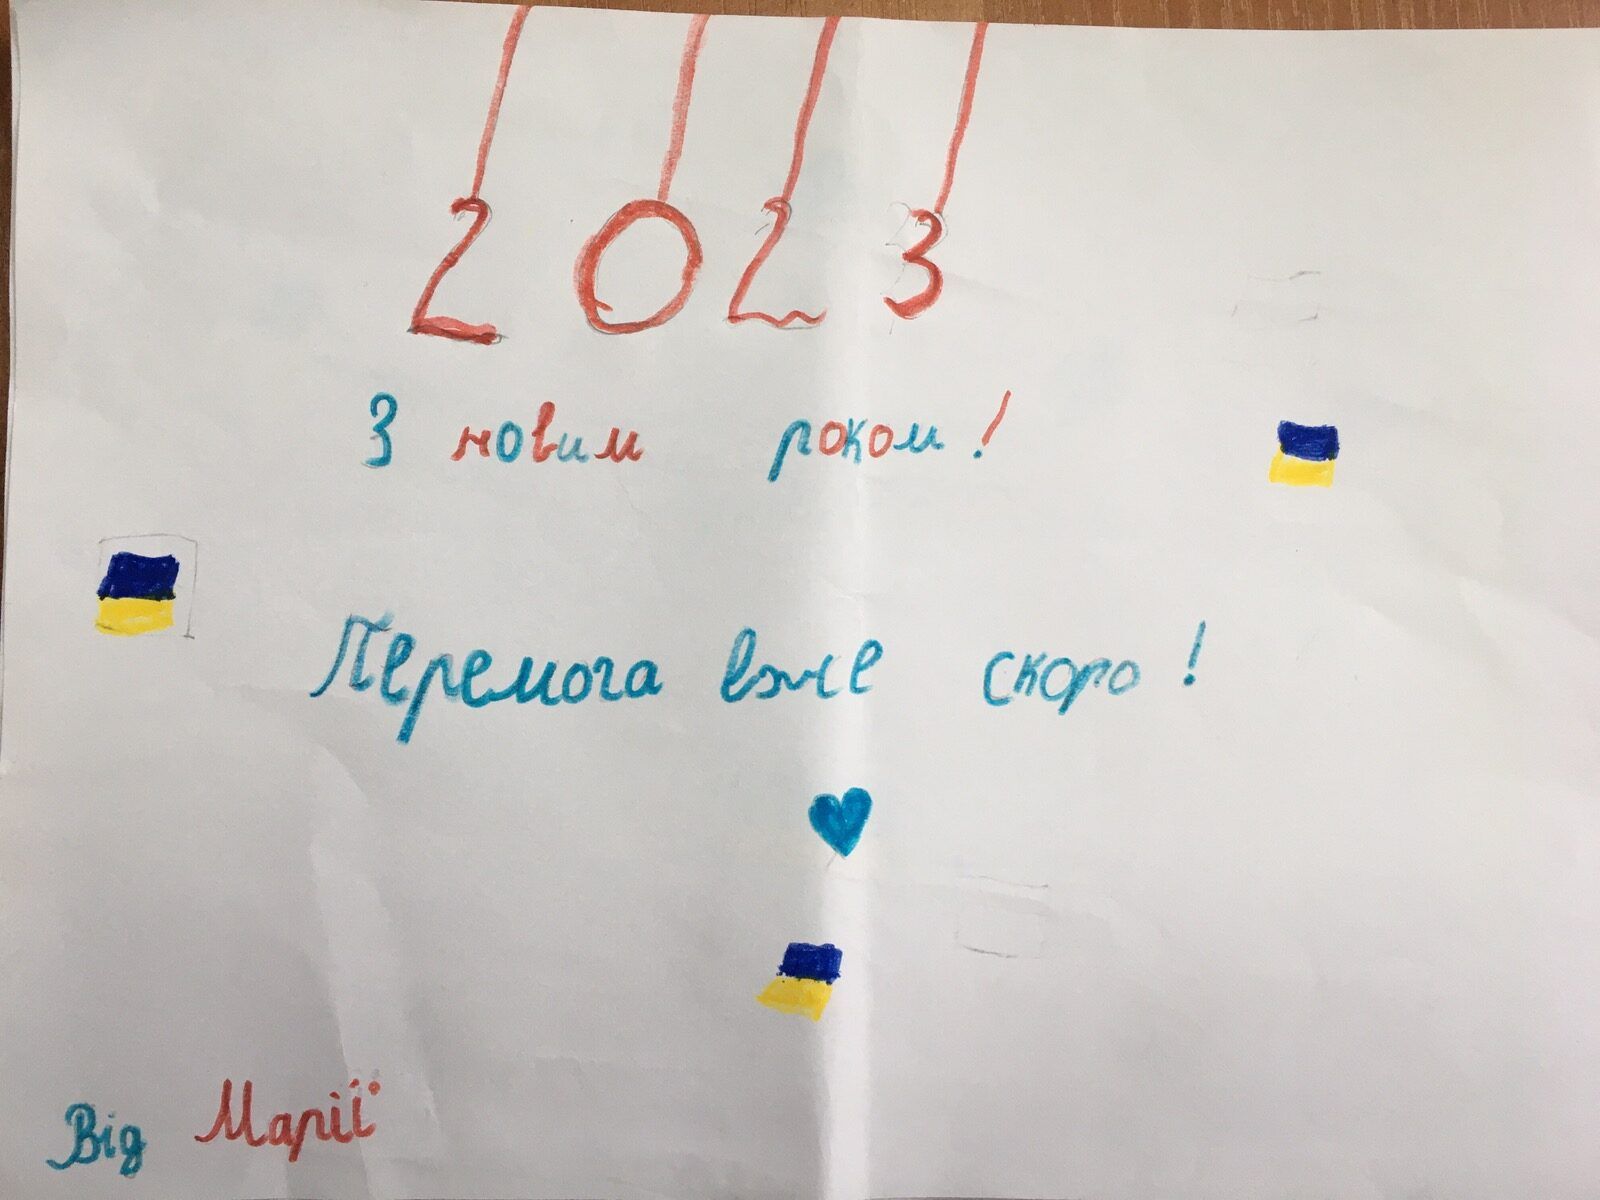 2023
З новим роком!
Перемога вже скоро!
Від Марії